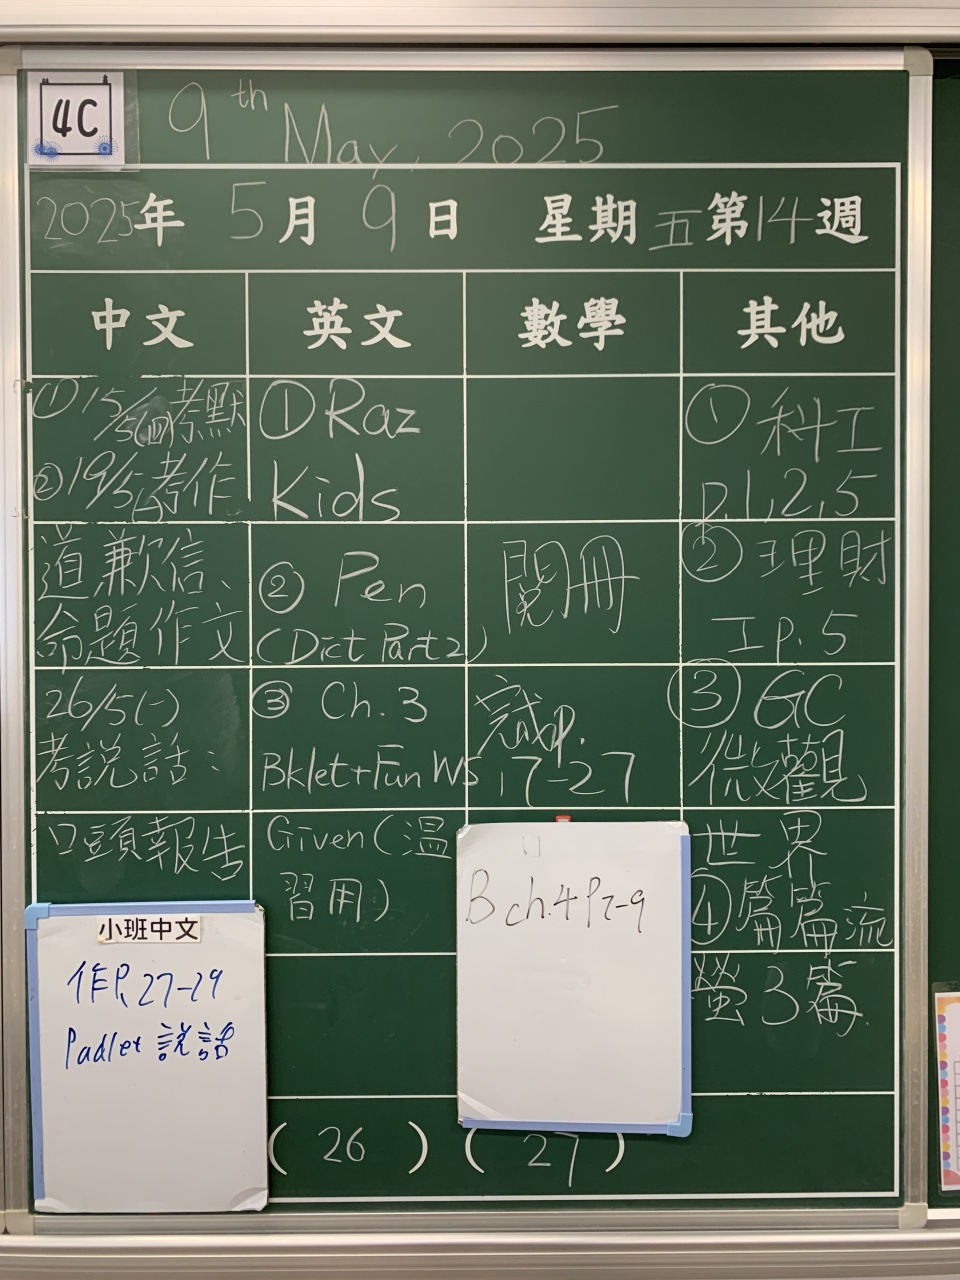 4C
9th May, 2025
2025年 5月 9日 星期五 第14週
中文
①15/5(四)考默
②19/5 考作
道歉信、
命題作文
26/5(一)
考說話:
口頭報告
小班中文
作P.27-29
Padlet 說話
英文
①Raz
Kids
② Pen
(Dict Part 2)
③ Ch.3
Bklet+Fun WS
Given(溫
習用)
(26)
數學
閱冊
完成p.
17-27
B ch.4 P7-9
(27)
其他
① 科工
p.1,2,5
② 理財
工p.5
③ GC
微觀
世界
④篇篇流
螢3篇.